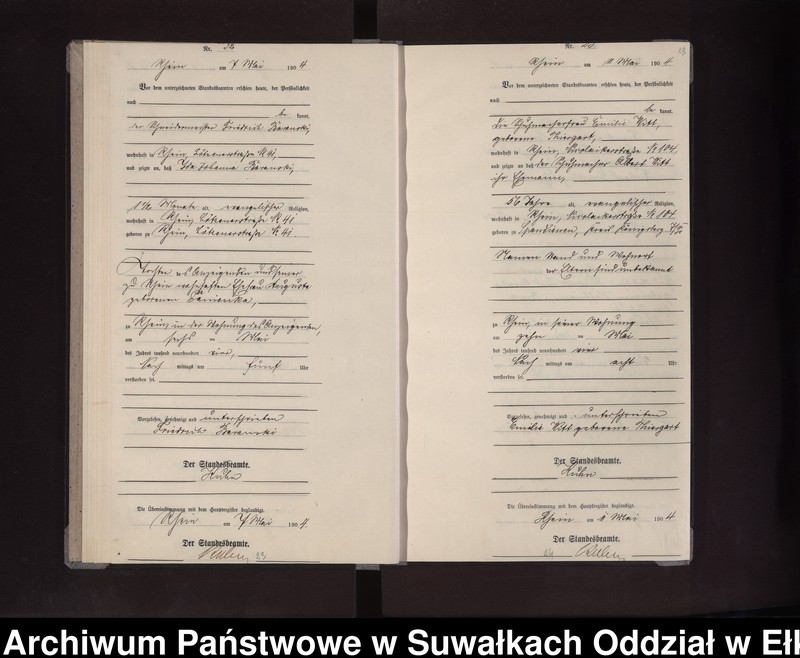 Nr.
Rhein am 7 Mai 1904
Vor dem unterzeichneten Standesbeamten erschien heute, der Persönlichkeit
nach
be kannt,
der Schneidermeister Friedrich Baranski,
wohnhaft in Rhein, Lötzenerstraße № 41,
und zeigte an, daß Ida Johanna Baranski,
Monate alt, evangelischer Religion,
wohnhaft in Rhein, Lötzenerstraße № 41
geboren zu Rhein, Lötzenerstraße № 41
Tochter des Anzeigenden und seiner
zu Rhein wohnhaften Ehefrau Auguste
geborenen
zu Rhein, in der Wohnung des Anzeigenden,
am sechs ten Mai
des Jahres tausend neunhundert vier,
Nach mittags um fünf Uhr
verstorben sei.
Vorgelesen, genehmigt und unterschrieben
Friedrich Baranski
Der Standesbeamte.
Kuhn
Die Übereinstimmung mit dem Hauptregister beglaubigt.
Rhein am 7 Mai 1904.
Der Standesbeamte.
Nr.
Rhein am 11 Mai 1904
Vor dem unterzeichneten Standesbeamten erschien heute, der Persönlichkeit
nach
be kannt,
die Schuhmacherfrau Emilie Witt,
geborene Thiergart,
wohnhaft in Rhein, Nikolaikerstraße № 104,
und zeigte an, daß der Schuhmacher Albert Witt
ihr Ehemann,
56 Jahre alt, evangelischer Religion,
wohnhaft in Rhein, Nikolaikerstraße № 104
geboren zu Spandienen, Kreis Königsberg
Namen Stand und Wohnort
der Eltern sind unbekannt
zu Rhein, in seiner Wohnung
am zehn ten Mai
des Jahres tausend neunhundert vier
Nach mittags um acht Uhr
verstorben sei.
Vorgelesen, genehmigt und unterschrieben
Emilie Witt geborene Thiergart
Der Standesbeamte.
Kuhn
Die Übereinstimmung mit dem Hauptregister beglaubigt.
Rhein am Mai 1904
Der Standesbeamte.
Archiwum Państwowe w Suwałkach Oddział w Ełk